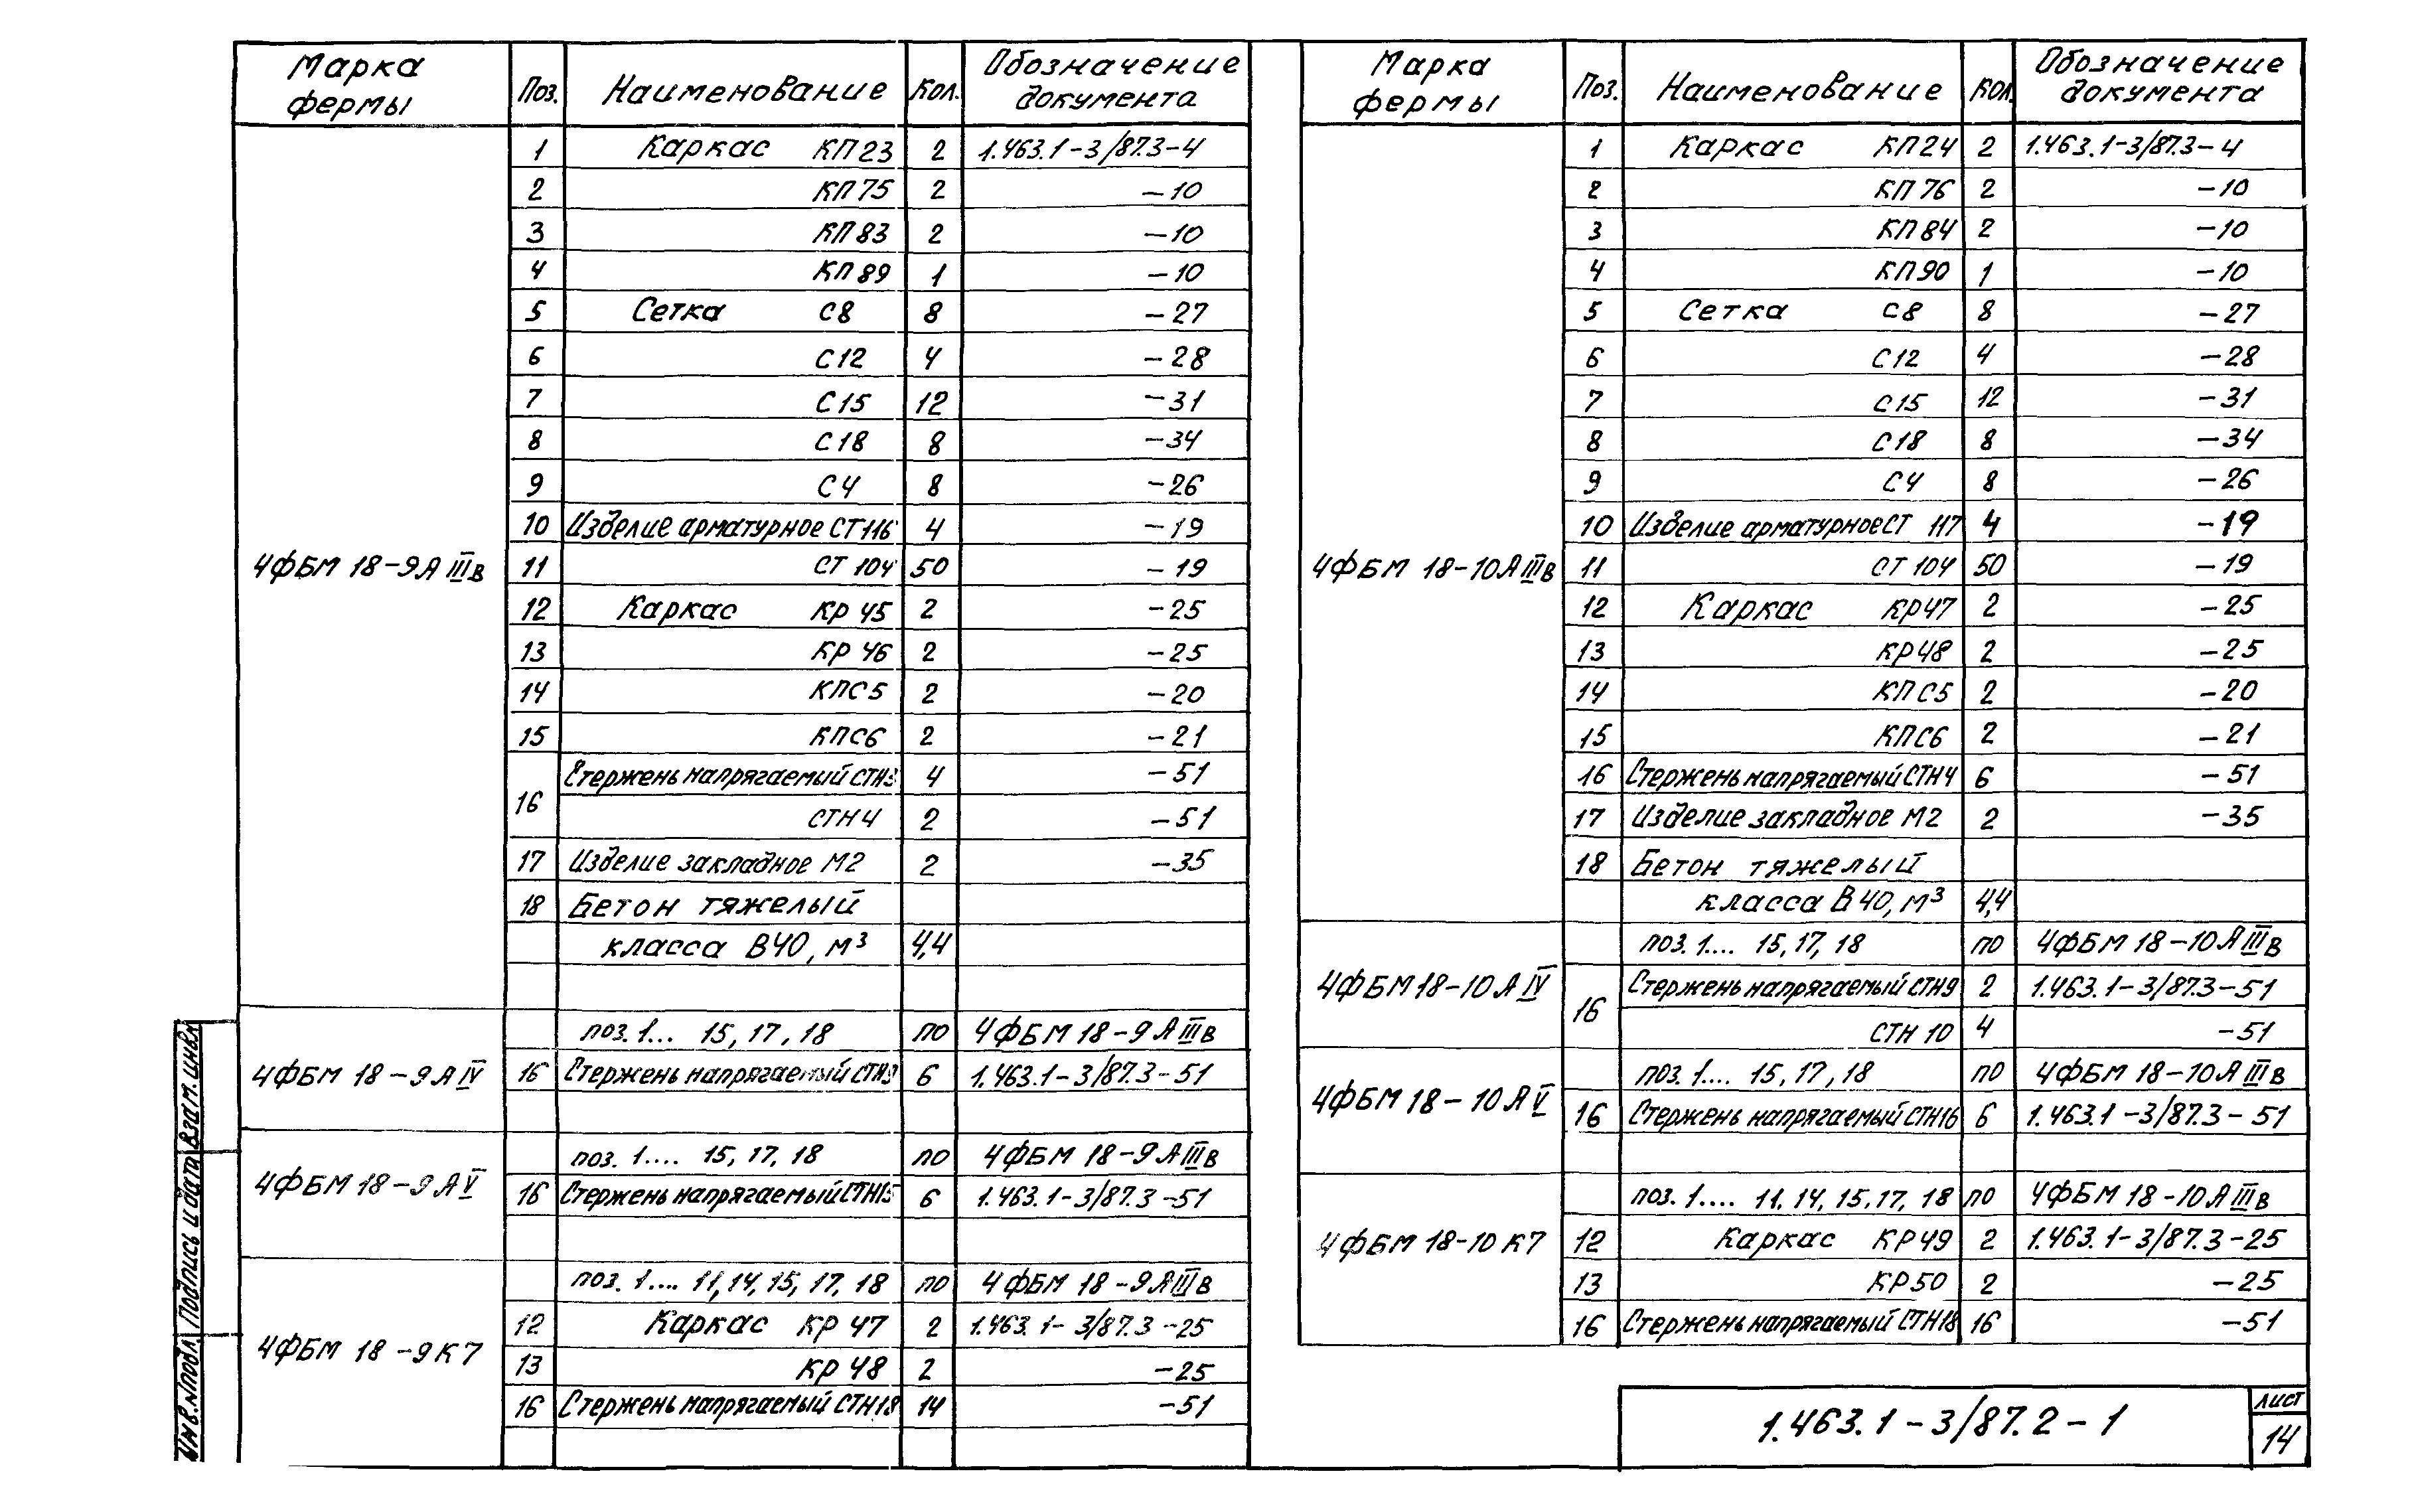 Марка фермы Поз. Наименование Кол. Обозначение документа
4ФБМ 18-9АIIIв
1 Каркас КП23 2 1.463.1-3/87.3-4
2 КП75 2 -10
3 КП83 2 -10
4 КП89 1 -10
5 Сетка С8 8 -27
6 С12 4 -28
7 С15 12 -31
8 С18 8 -34
9 С4 8 -26
10 Изделие арматурное СТ116 4 -19
11 СТ104 50 -19
12 Каркас КР45 2 -25
13 КР46 2 -25
14 КПС5 2 -20
15 КПС6 2 -21
16 Стержень напрягаемый СТН3 4 -51
СТН4 2 -51
17 Изделие закладное М2 2 -35
18 Бетон тяжелый
класса В40, м³ 4,4
4ФБМ 18-9АIV
поз. 1... 15, 17, 18 по 4ФБМ 18-9АIIIв
16 Стержень напрягаемый СТН9 6 1.463.1-3/87.3-51
4ФБМ 18-9АV
поз. 1.... 15, 17, 18 по 4ФБМ 18-9АIIIв
16 Стержень напрягаемый СТН15 6 1.463.1-3/87.3-51
4ФБМ 18-9К7
поз. 1.... 11, 14, 15, 17, 18 по 4ФБМ 18-9АIIIв
12 Каркас КР47 2 1.463.1-3/87.3-25
13 КР48 2 -25
16 Стержень напрягаемый СТН18 14 -51
Марка фермы Поз. Наименование Кол. Обозначение документа
4ФБМ 18-10АIIIв
1 Каркас КП24 2 1.463.1-3/87.3-4
2 КП76 2 -10
3 КП84 2 -10
4 КП90 1 -10
5 Сетка С8 8 -27
6 С12 4 -28
7 С15 12 -31
8 С18 8 -34
9 С4 8 -26
10 Изделие арматурное СТ 117 4 -19
11 СТ104 50 -19
12 Каркас КР47 2 -25
13 КР48 2 -25
14 КПС5 2 -20
15 КПС6 2 -21
16 Стержень напрягаемый СТН4 6 -51
17 Изделие закладное М2 2 -35
18 Бетон тяжелый
класса В40, м³ 4,4
4ФБМ 18-10АIV
поз. 1.... 15, 17, 18 по 4ФБМ 18-10АIIIв
16 Стержень напрягаемый СТН9 2 1.463.1-3/87.3-51
СТН10 4 -51
4ФБМ 18-10АV
поз. 1.... 15, 17, 18 по 4ФБМ 18-10АIIIв
16 Стержень напрягаемый СТН16 6 1.463.1-3/87.3-51
4ФБМ 18-10К7
поз. 1.... 11, 14, 15, 17, 18 по 4ФБМ 18-10АIIIв
12 Каркас КР49 2 1.463.1-3/87.3-25
13 КР50 2 -25
16 Стержень напрягаемый СТН18 16 -51
Инв.№подл. Подпись и дата Взам.инв.№
1.463.1-3/87.2-1
лист
14